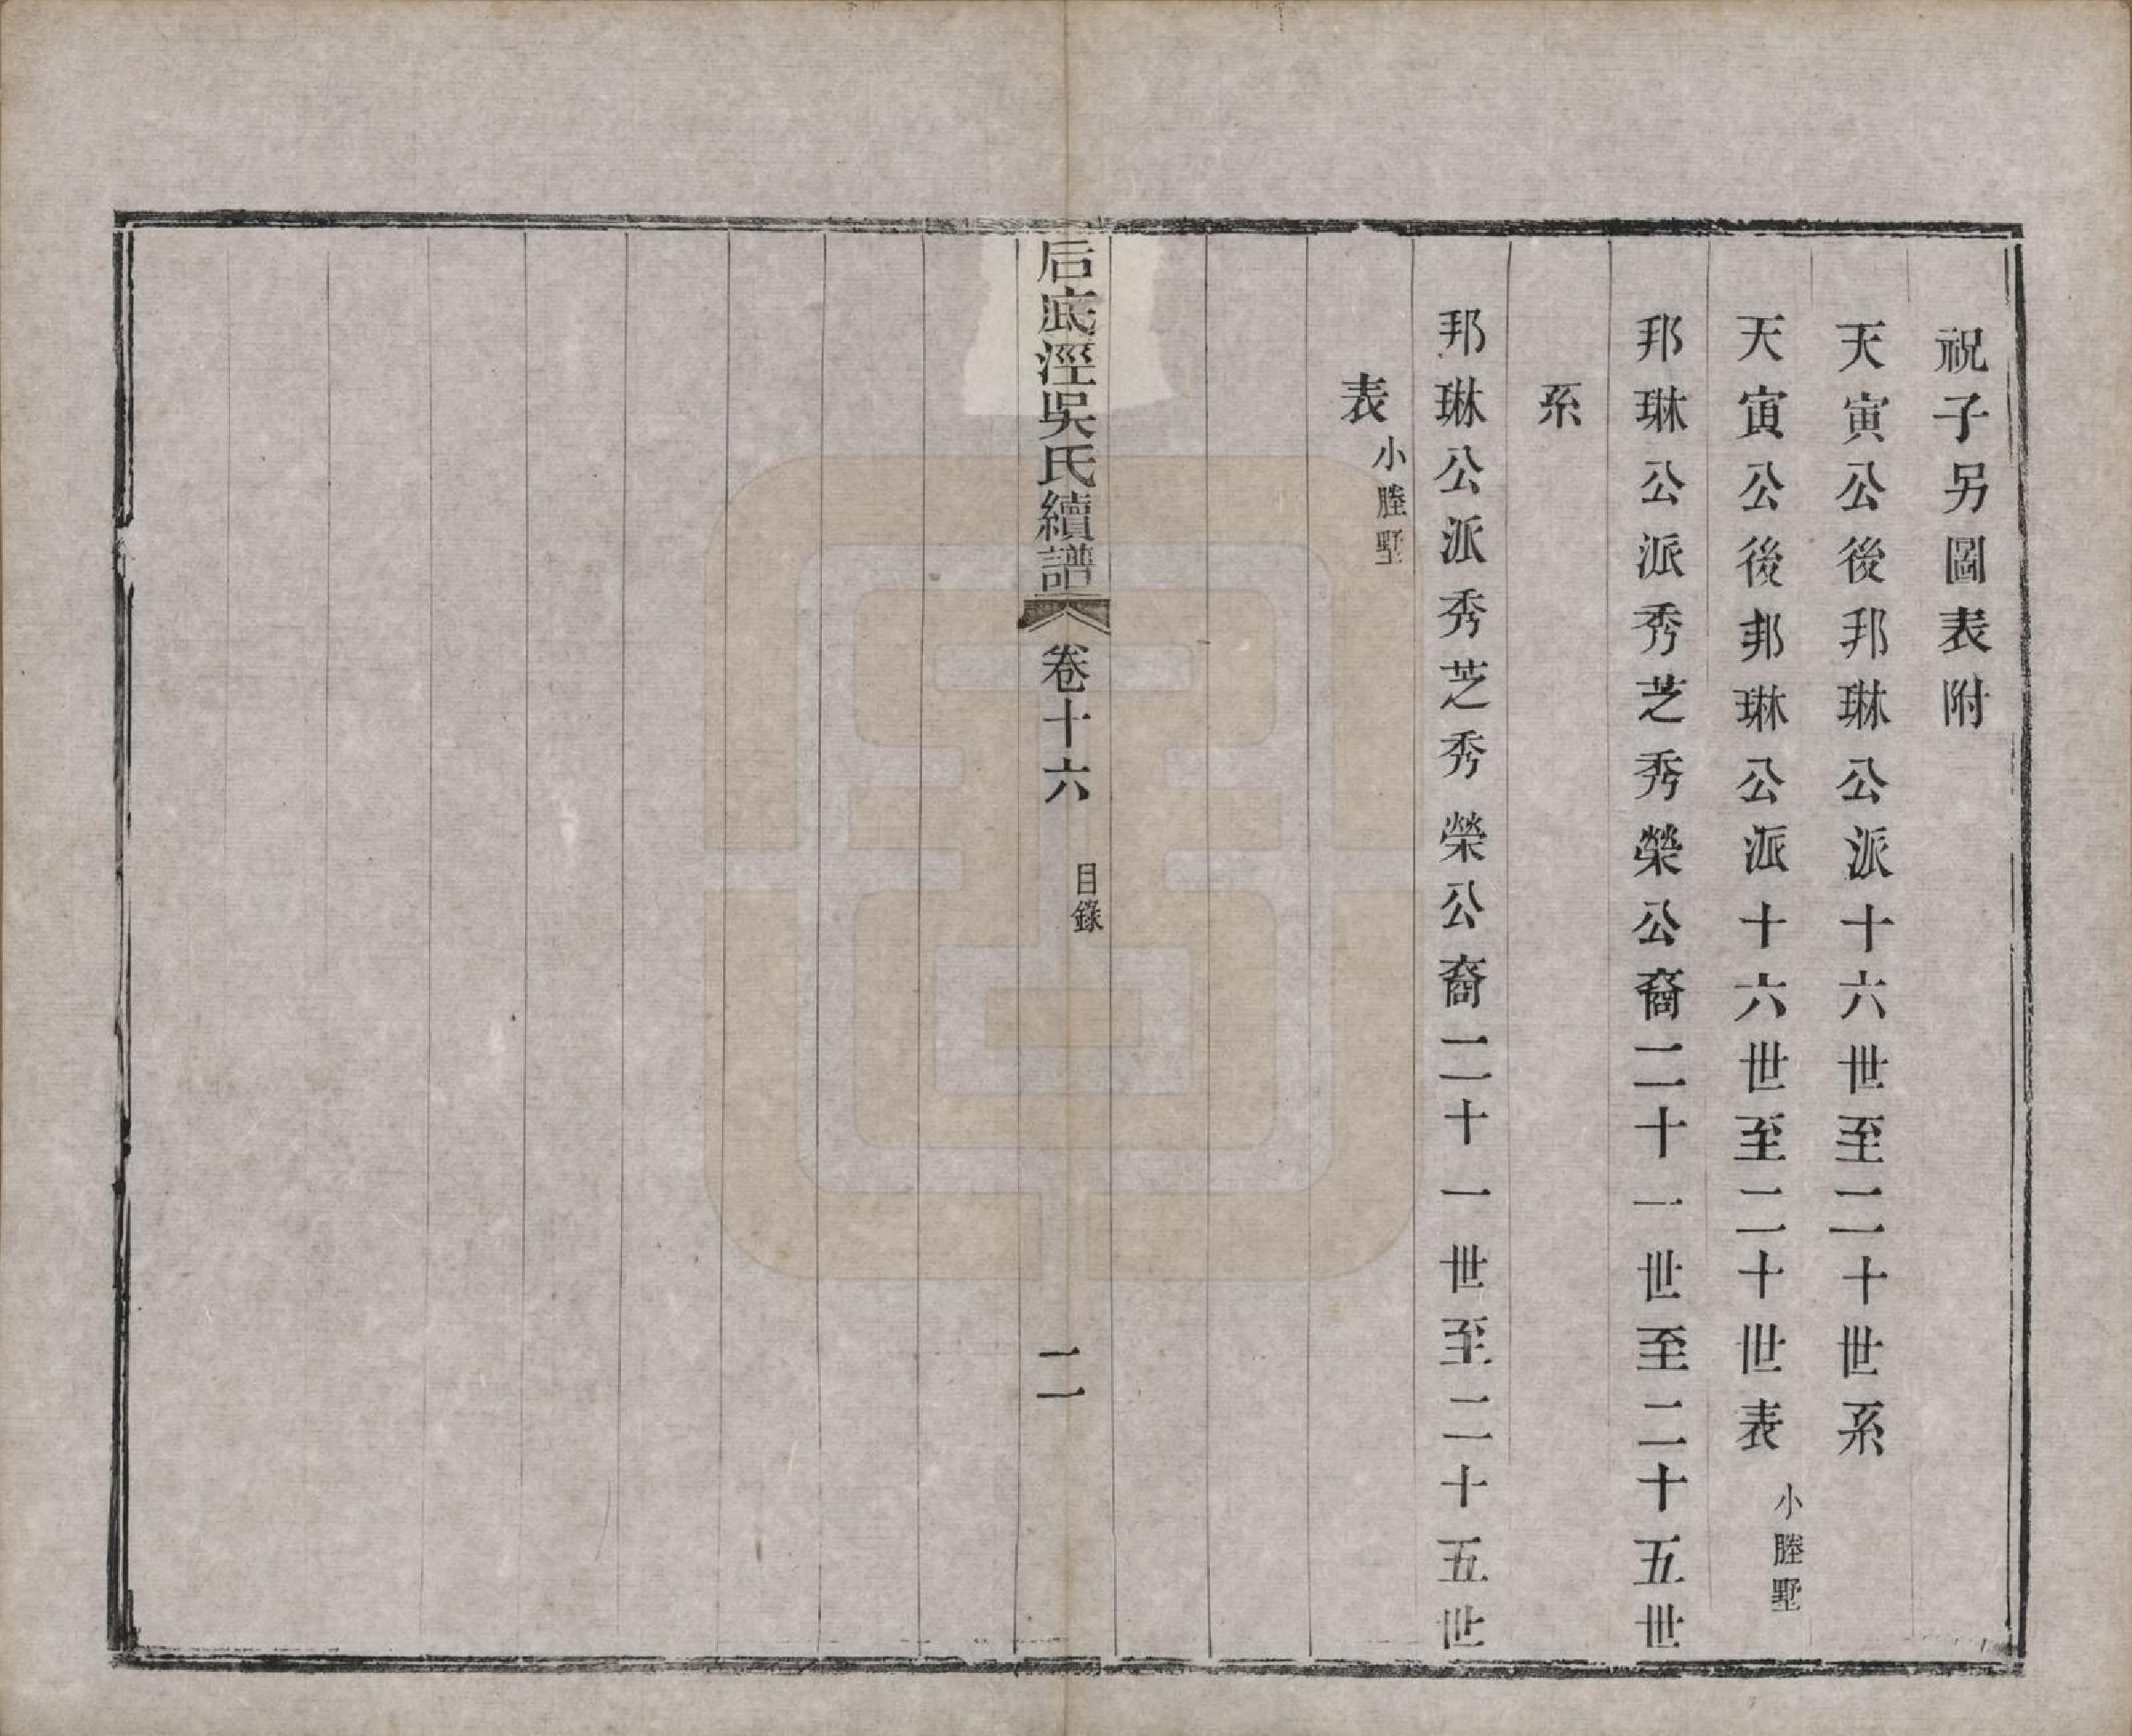 祝子另圖表附
天寅公後邦琳公派十六世至二十世系
天寅公後邦琳公派十六世至二十世表 小塍墅
邦琳公派秀芝秀榮公裔二十一世至二十五世
系
邦琳公派秀芝秀榮公裔二十一世至二十五世
表 小塍墅
后底涇吳氏續譜 卷十六 目錄 二